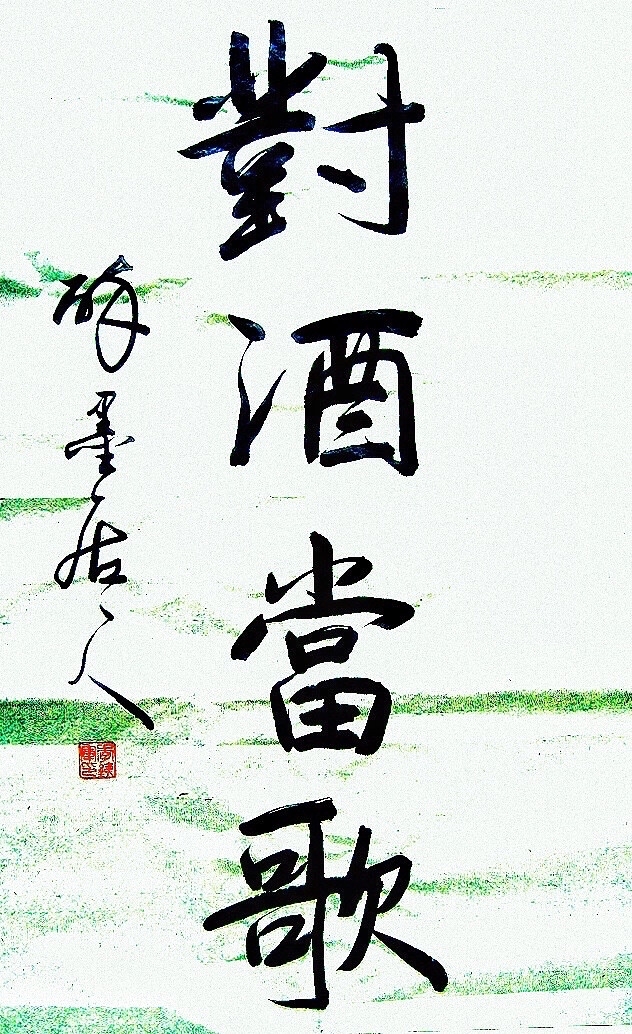 對酒當歌
醉墨居人